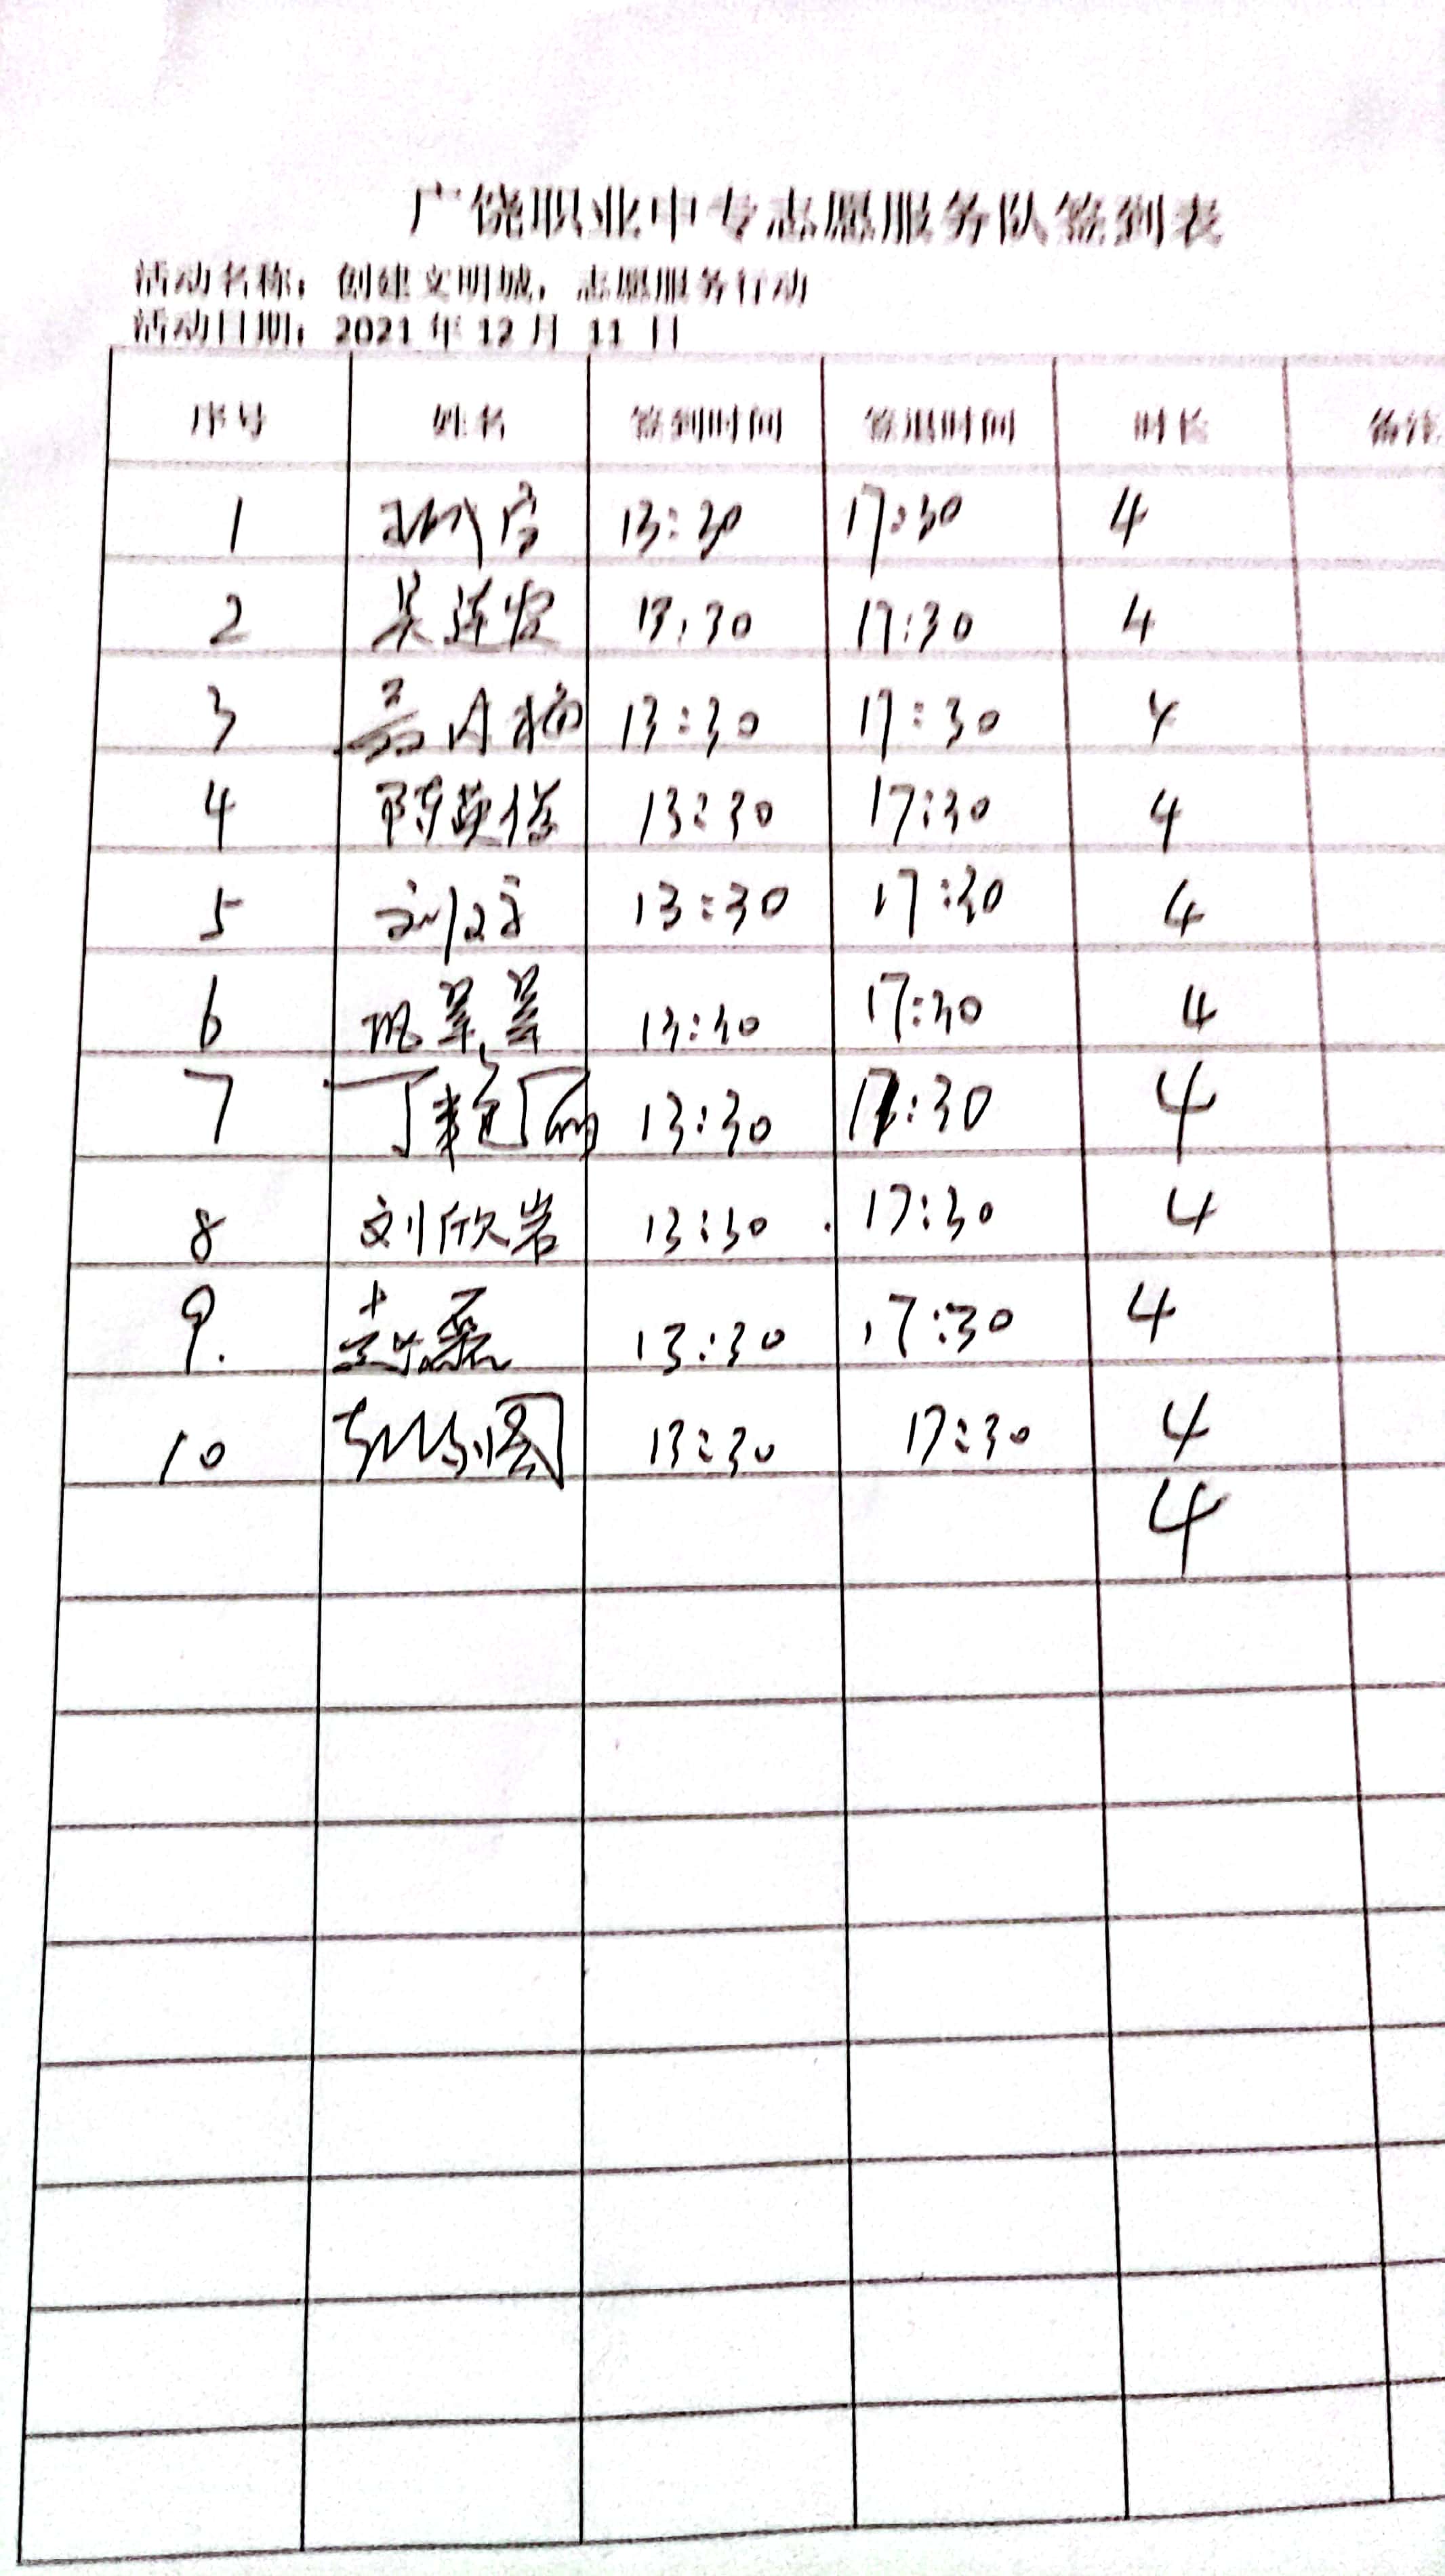 广饶职业中专志愿服务队签到表
活动名称：创建文明城，志愿服务行动
活动日期：2021 年 12 月 11 日
序号 姓名 签到时间 签退时间 时长 备注
1 13:30 17:30 4
2 吴连发 13:30 17:30 4
3 13:30 17:30 4
4 陈英俊 13:30 17:30 4
5 刘 13:30 17:30 4
6 巩翠翠 13:30 17:30 4
7 丁艳丽 13:30 17:30 4
8 刘欣岩 13:30 17:30 4
9. 赵磊 13:30 17:30 4
10 13:30 17:30 4
4